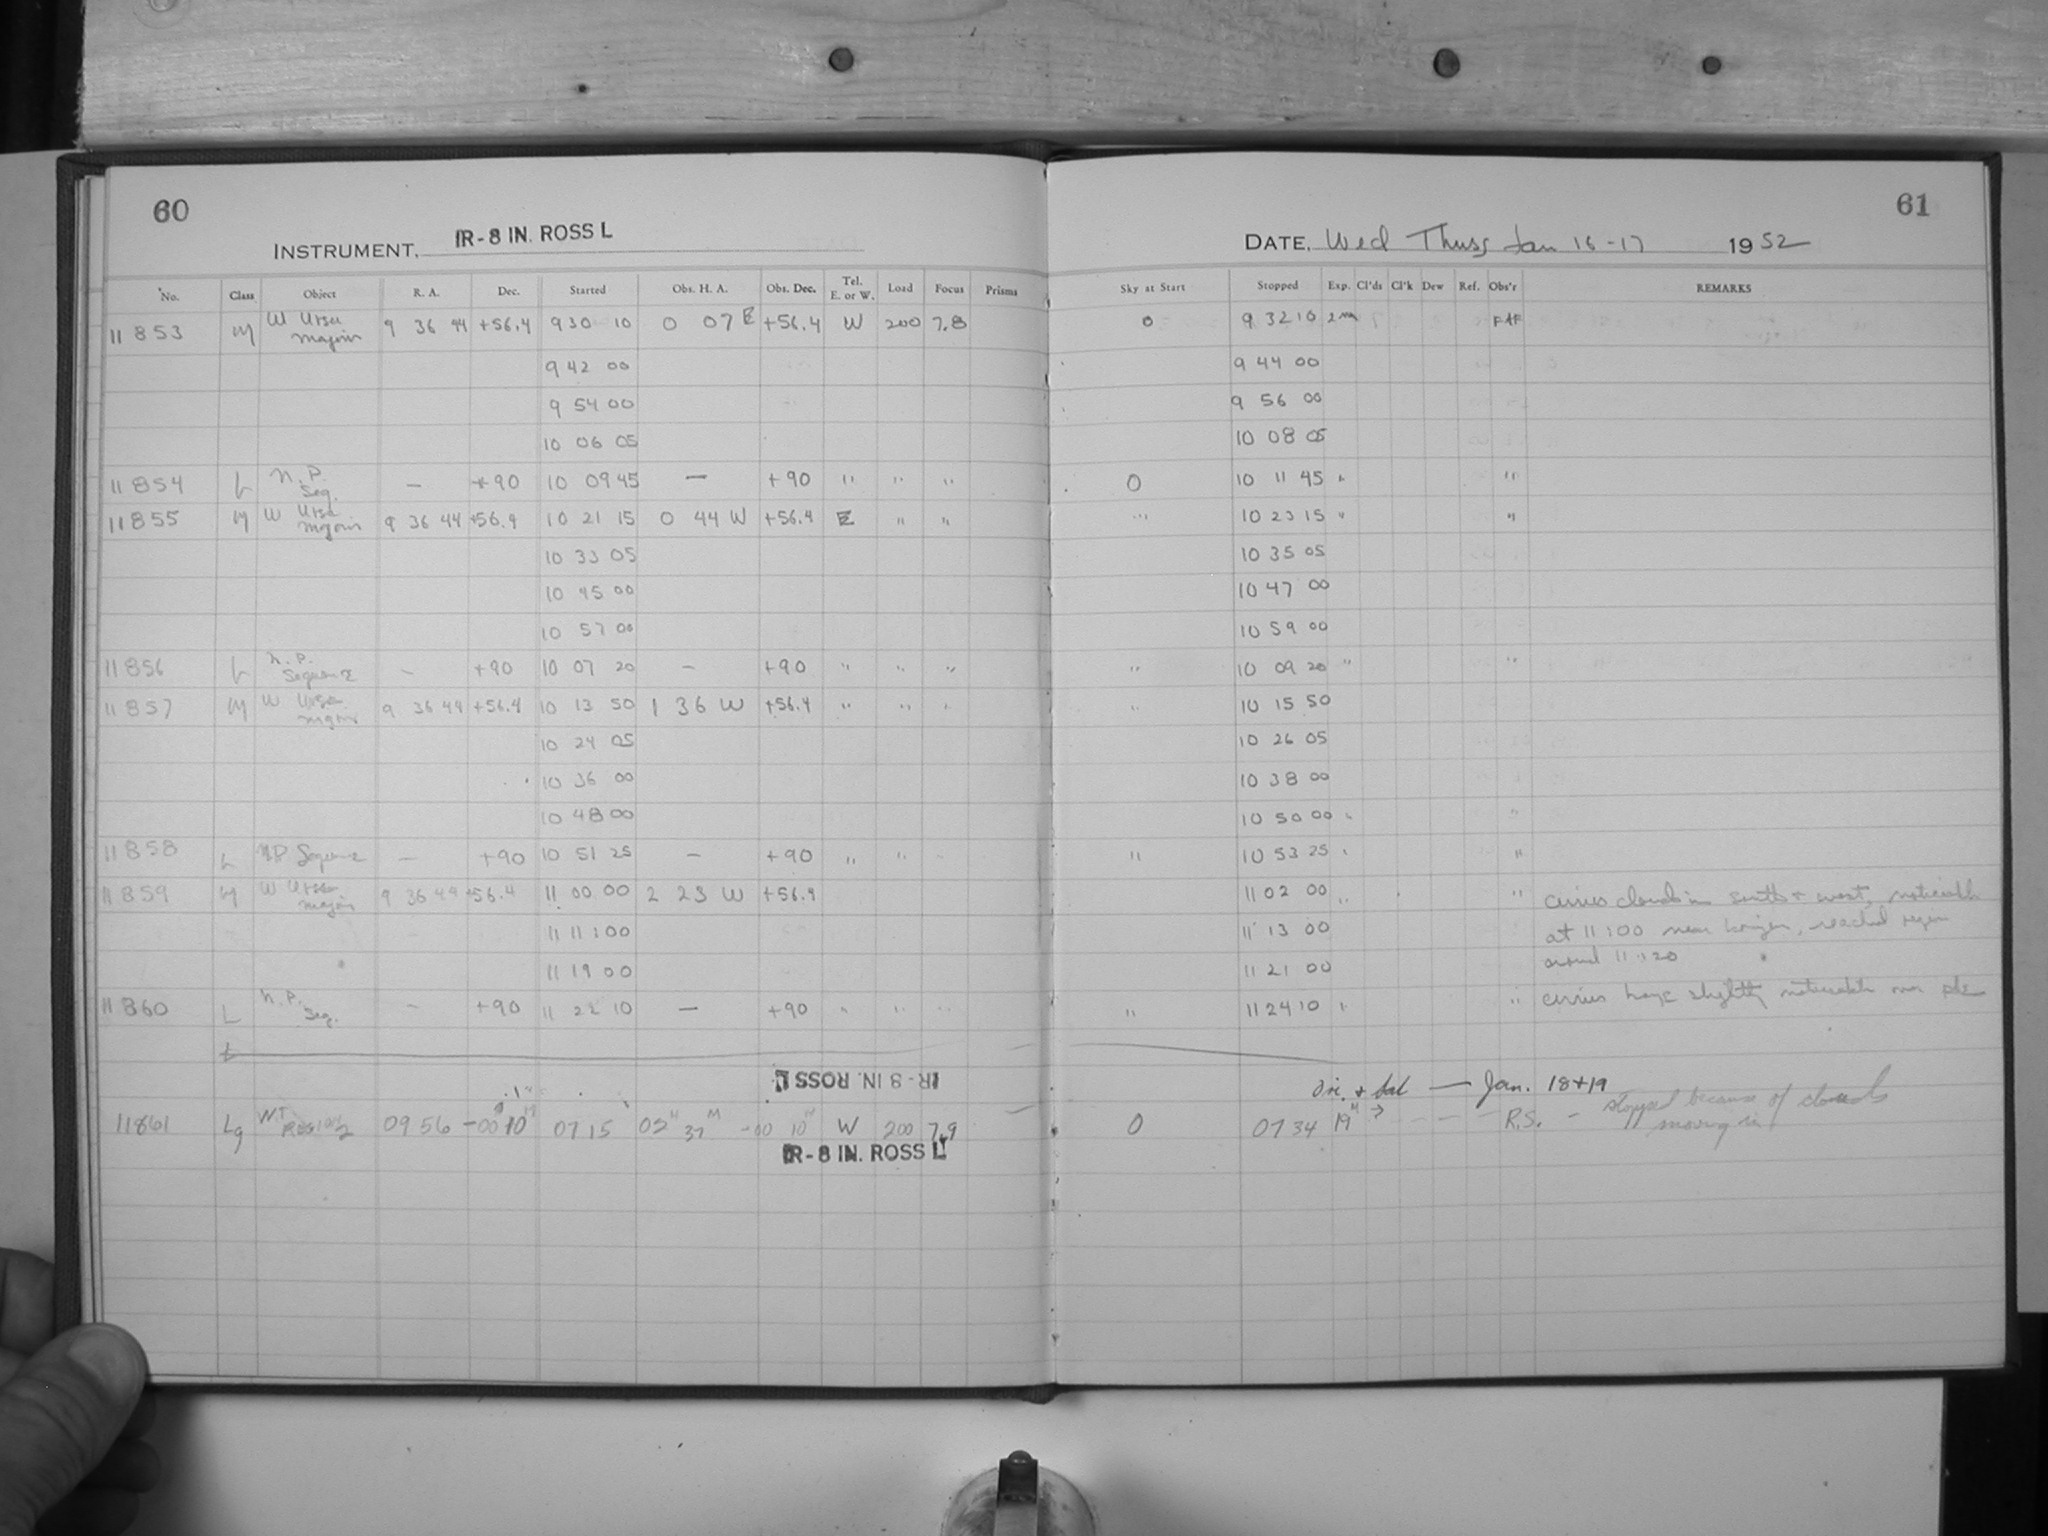 60
INSTRUMENT, IR-8 IN. ROSS L
No. Class Object R. A. Dec. Started Obs. H. A. Obs. Dec. Tel. E. or W. Load Focus Prisms
11853 M W Ursa Majoris 9 36 44 +56.4 9 30 10 0 07 E +56.4 W 200 7.8
9 42 00
9 54 00
10 06 05
11854 L N.P. Seq. — +90 10 09 45 — +90 " " "
11855 M W Ursa Majoris 9 36 44 +56.4 10 21 15 0 44 W +56.4 E " "
10 33 05
10 45 00
10 57 00
11856 L N.P. Sequence — +90 10 07 20 — +90 " " "
11857 M W Ursa Majoris 9 36 44 +56.4 10 13 50 1 36 W +56.4 " " "
10 24 05
10 36 00
10 48 00
11858 L NP Sequence — +90 10 51 25 — +90 " " "
11859 M W Ursa Majoris 9 36 44 +56.4 11 00 00 2 23 W +56.4
11 11:00
11 19 00
11860 L N.P. Seq. — +90 11 22 10 — +90 " " "
L
IR-8 IN. ROSS L
11861 Lg 09 56 -00 10 07 15 02H 37M -00 10 W 200 7.9
IR-8 IN. ROSS L
61
DATE, Wed Thurs Jan 16-17 1952
Sky at Start Stopped Exp. Cl'ds Cl'k Dew Ref. Obs'r REMARKS
0 9 32 10 2m
9 44 00
9 56 00
10 08 05
0 10 11 45 " "
" 10 23 15 " "
10 35 05
10 47 00
10 59 00
" 10 09 20 " "
" 10 15 50
10 26 05
10 38 00
10 50 00 " "
" 10 53 25 " "
11 02 00 " " cirrus clouds in south + west, noticeable
11 13 00 at 11:00 near horizon, reached region
11 21 00 around 11:20
" 11 24 10 " " cirrus haze slightly noticeable over pole
Fri. + Sat — Jan. 18+19
0 07 34 19M R.S. - stopped because of clouds
moving in